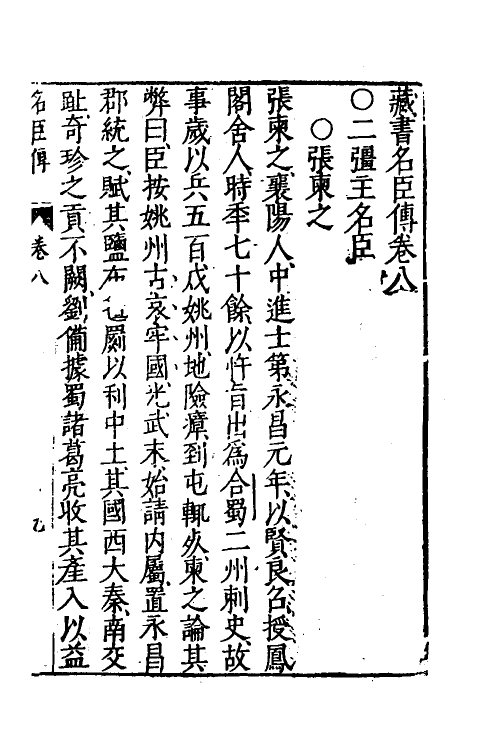 藏書名臣傳卷八
○二彊主名臣
○張柬之
張柬之襄陽人中進士第永昌元年以賢良召授鳳
閣舍人時年七十餘以忤旨出爲合蜀二州刺史故
事歲以兵五百戍姚州地險瘴到屯輒死柬之論其
弊曰臣按姚州古哀牢國光武末始請内屬置永昌
郡統之賦其鹽布 以利中土其國西大秦南交
趾奇珍之貢不闕劉備據蜀諸葛亮收其產入以益
名臣傳 卷八